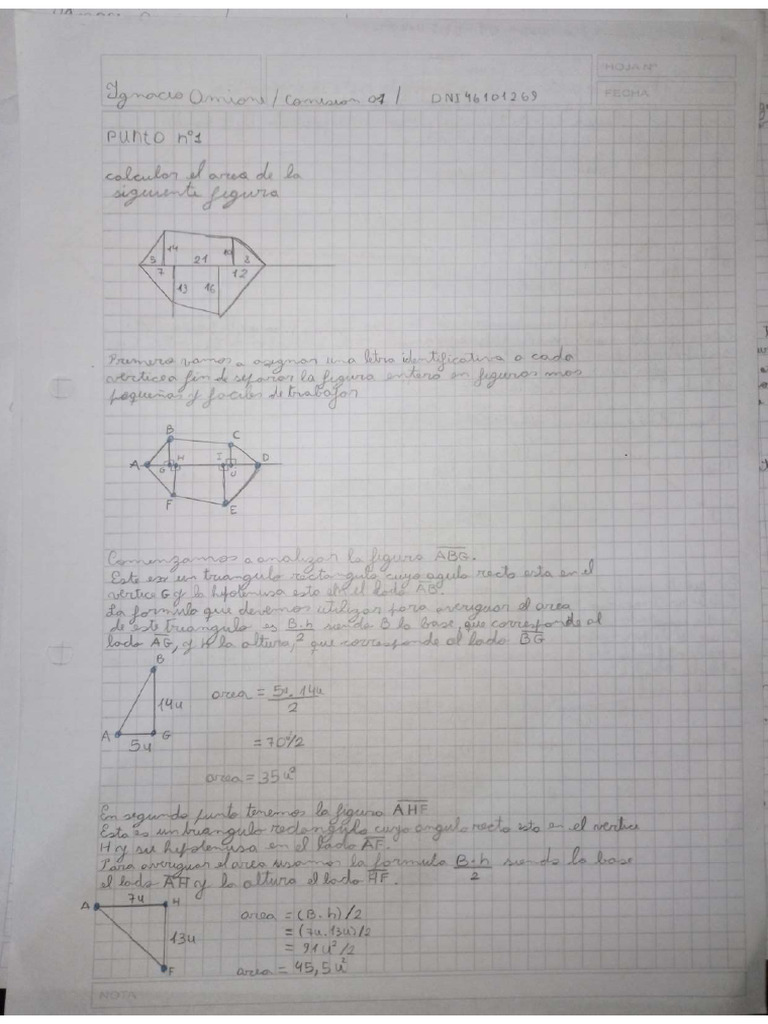 HOJA Nº
FECHA
Ignacio Amione / Comision 01 / DNI 46101269
PUNTO nº1
calcular el area de la
siguiente figura
14 10
5 21 8
7 12
13 16
Primero vamos a asignar una letra identificativa a cada
vertice a fin de separar la figura entera en figuras mas
pequeñas y faciles de trabajar
B C
A G H I J D
F E
Comenzamos a analizar la figura ABG.
Este es un triangulo rectangulo cuyo agulo recto esta en el
vertice G y la hipotenusa esta el lado AB.
La formula que devemos utilizar para averiguar el area
de este triangulo es B.h/2 siendo B la base, que corresponde al
lado AG, y H la altura, que corresponde al lado BG
B
14u
A G
5u
area = 5u.14u/2
= 70/2
area = 35u²
En segundo punto tenemos la figura AHF
Esta es un triangulo rectangulo cuyo angulo recto esta en el vertice
H y su hipotenusa en el lado AF.
Para averiguar el area usamos la formula B.h/2 siendo la base
el lado AH y la altura el lado HF.
7u
A H
13u
F
area = (B.h)/2
= (7u.13u)/2
= 91u²/2
area = 45,5u²
NOTA